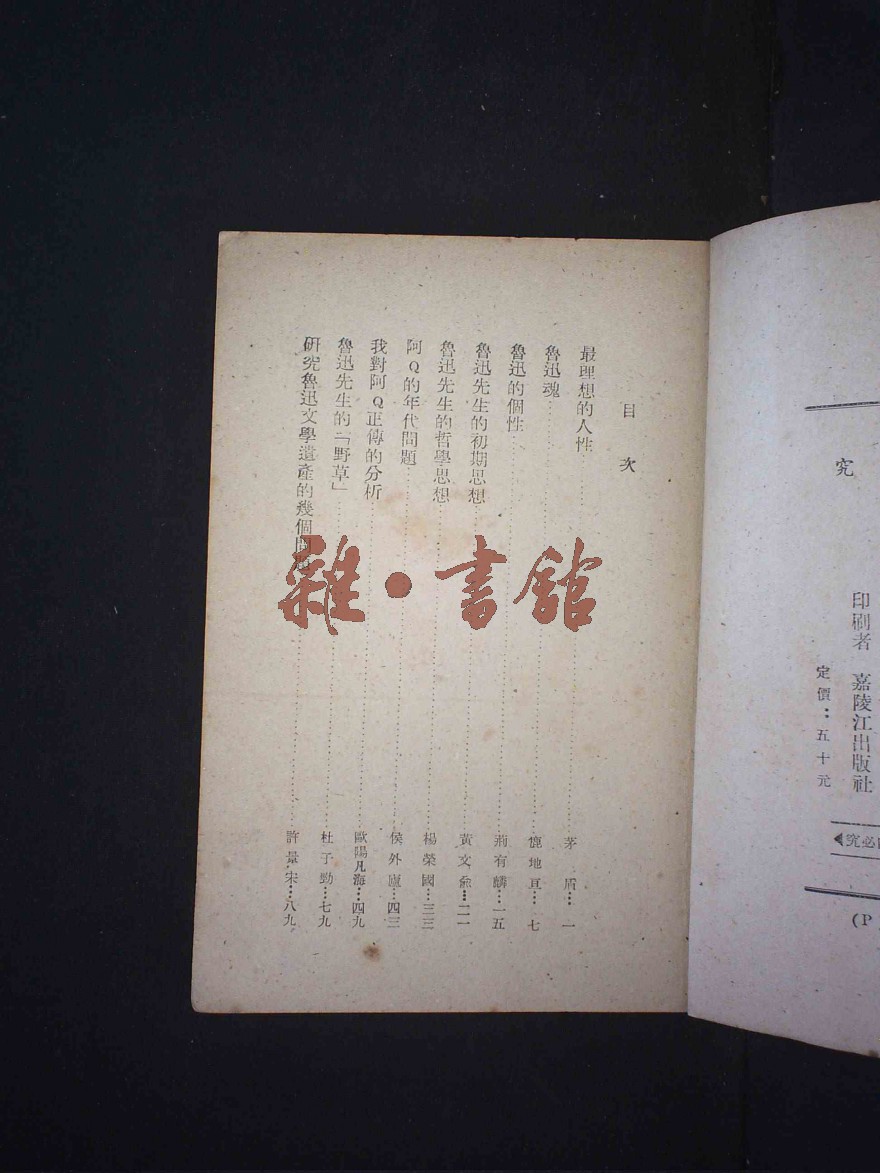 究
印刷者 嘉陵江出版社
定價：五十元
必究
(P
目次
最理想的人性……茅盾…一
魯迅魂……鹿地亘…七
魯迅的個性……荊有麟…一五
魯迅先生的初期思想……黃文俞…二一
魯迅先生的哲學思想……楊榮國…三三
阿Q的年代問題……侯外廬…四三
我對阿Q正傳的分析……歐陽凡海…四九
魯迅先生的「野草」……杜子勁…七九
研究魯迅文學遺產的幾個問題……許量宋…八九
雜・書館